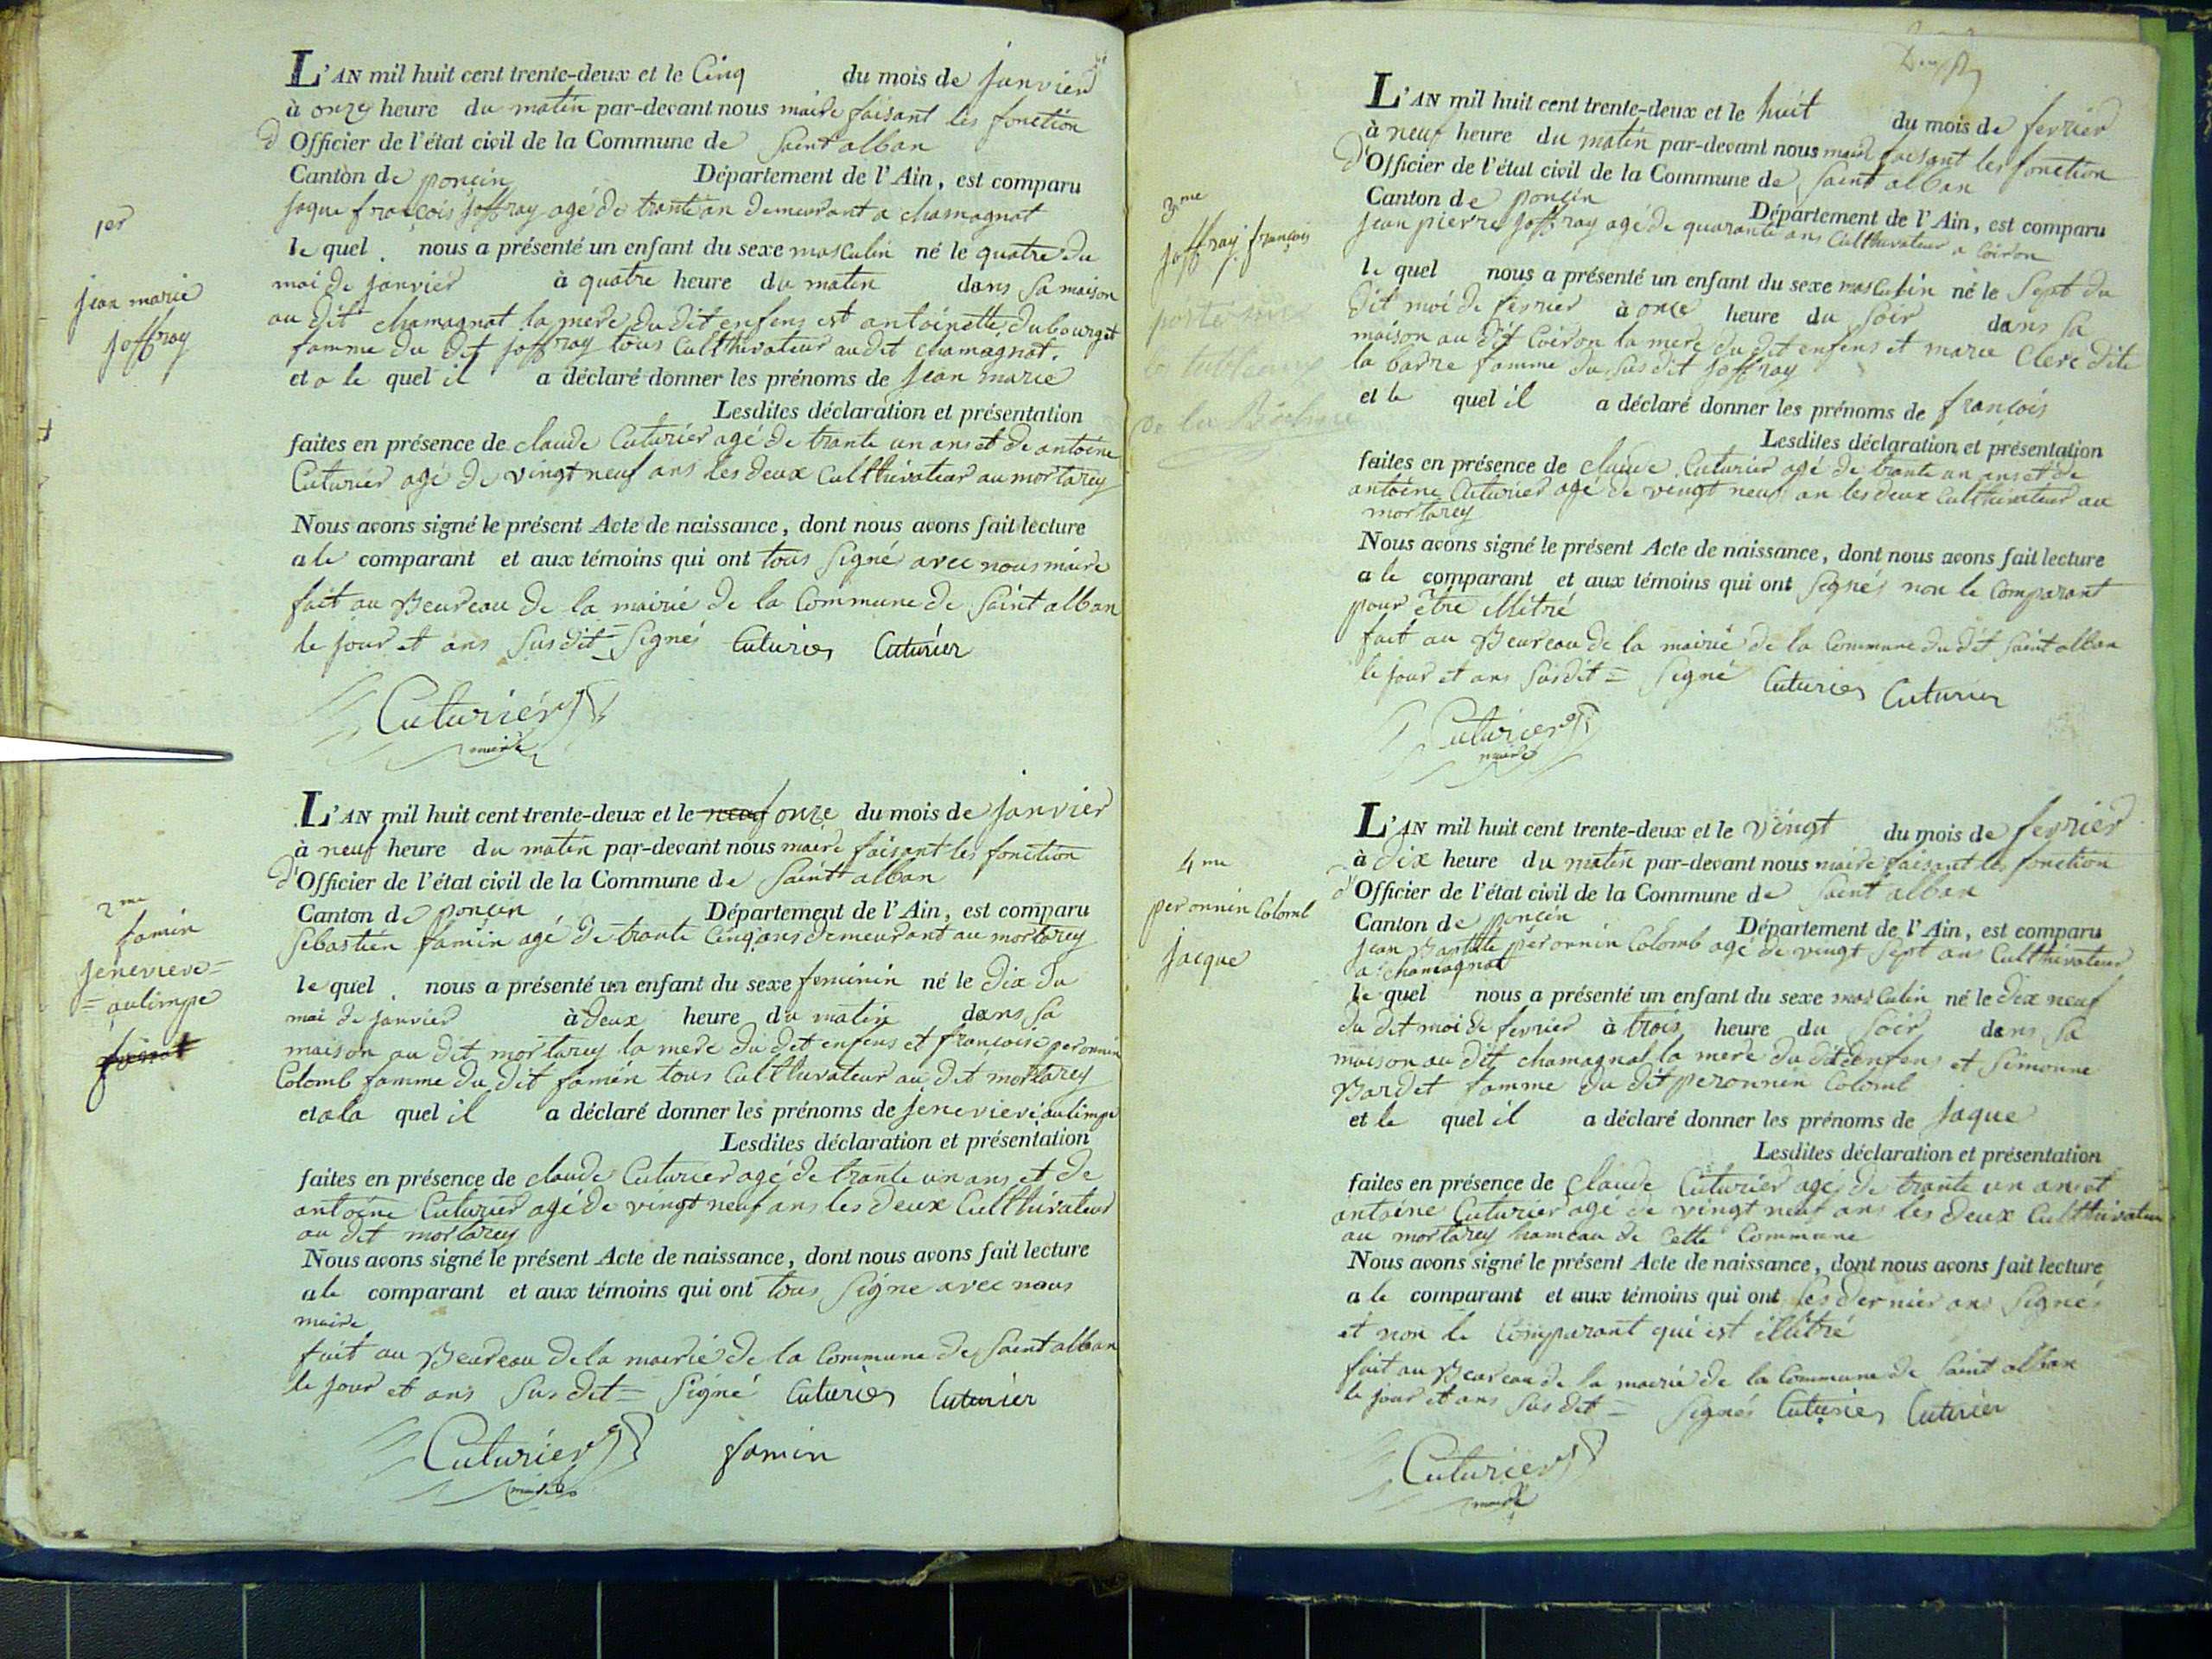 1er
jean marie
joffray
L'AN mil huit cent trente-deux et le Cinq du mois de janvier
à onze heure du matin par-devant nous maire faisant les fonction
d Officier de l'état civil de la Commune de Saint alban
Canton de poncin Département de l'Ain, est comparu
jaque françois joffray agé de trante an demeurant a chamagnat
le quel nous a présenté un enfant du sexe masculin né le quatre du
moi de janvier à quatre heure du matin dans sa maison
au dit chamagnat la mere du dit enfens est antoinette dubourget
famme du dit joffray tous Culthivateur audit chamagnat.
et a le quel il a déclaré donner les prénoms de jean marie
Lesdites déclaration et présentation
faites en présence de claude Cuturier agé de trante un ans et de antoine
Cuturier agé de vingt neuf ans les deux Culthivateur au mortarey
Nous avons signé le présent Acte de naissance, dont nous avons fait lecture
a le comparant et aux témoins qui ont tous Signé avec nous maire
fait au Beureau de la mairie de la Commune de Saint alban
le jour et ans Susdit = Signés Cuturier Cuturier
Cuturier
maire
2me
famin
jenevieve =
= aulimpe
L'AN mil huit cent trente-deux et le neuf onze du mois de janvier
à neuf heure du matin par-devant nous maire faisant les fonction
d'Officier de l'état civil de la Commune de Saint alban
Canton de poncin Département de l'Ain, est comparu
Sebastien famin agé de trante Cinq ans demeurant au mortarey
le quel nous a présenté un enfant du sexe feminin né le dix du
moi de janvier à deux heure du matin dans sa
maison au dit mortarey la mere du dit enfens et françoise peronnin
Colomb famme du dit famin tous Culthivateur au dit mortarey
et a la quel il a déclaré donner les prénoms de jenevieve aulimpe
Lesdites déclaration et présentation
faites en présence de claude Cuturier agé de trante un ans et de
antoine Cuturier agé de vingt neuf ans les deux Culthivateur
au dit mortarey
Nous avons signé le présent Acte de naissance, dont nous avons fait lecture
a le comparant et aux témoins qui ont tous Signe avec nous
maire
fait au Beureau de la mairie de la Commune de Saint alban
le jour et ans Sus dit = Signé Cuturier Cuturier
Cuturier famin
maire
3me
joffray françois
porté sur
les tableaux
de la
L'AN mil huit cent trente-deux et le huit du mois de fevrier
à neuf heure du matin par-devant nous maire faisant les fonction
d'Officier de l'état civil de la Commune de Saint alban
Canton de poncin Département de l'Ain, est comparu
jean pierre joffray agé de quarante ans Culthivateur a Coiron
le quel nous a présenté un enfant du sexe masculin né le Sept du
dit moi de fevrier à onze heure du Soir dans sa
maison au dit Coiron la mere du dit enfens et marie Clerc dite
la barre famme du Susdit joffray
et le quel il a déclaré donner les prénoms de françois
Lesdites déclaration et présentation
faites en présence de claude Cuturier agé de trante un ans et de
antoine Cuturier agé de vingt neuf an les deux Culthivateur au
mortarey
Nous avons signé le présent Acte de naissance, dont nous avons fait lecture
a le comparant et aux témoins qui ont Signés non le Comparant
pour être illitré
fait au Beureau de la mairie de la Commune du dit Saint alban
le jour et ans Susdit = Signé Cuturier Cuturier
Cuturier
maire
4me
peronnin Colomb
jacque
L'AN mil huit cent trente-deux et le Vingt du mois de fevrier
à dix heure du matin par-devant nous maire faisant les fonction
d'Officier de l'état civil de la Commune de Saint alban
Canton de poncin Département de l'Ain, est comparu
jean Baptiste peronnin Colomb agé de vingt Sept ans Culthivateur
a chamagnat
le quel nous a présenté un enfant du sexe masculin né le dix neuf
du dit moi de fevrier à trois heure du Soir dans Sa
maison au dit chamagnat la mere du dit enfens et Simonne
Bardet famme du dit peronnin Colomb
et le quel il a déclaré donner les prénoms de jaque
Lesdites déclaration et présentation
faites en présence de Claude Cuturier agé de trante un an et
antoine Cuturier agé de vingt neuf ans les deux Culthivateur
au mortarey hameau de Cette Commune
Nous avons signé le présent Acte de naissance, dont nous avons fait lecture
a le comparant et aux témoins qui ont les dernier ons Signés
et non le Comparant qui est illitré
fait au Beureau de la mairie de la Commune de Saint alban
le jour et ans Sus dit = Signés Cuturier Cuturier
Cuturier
maire